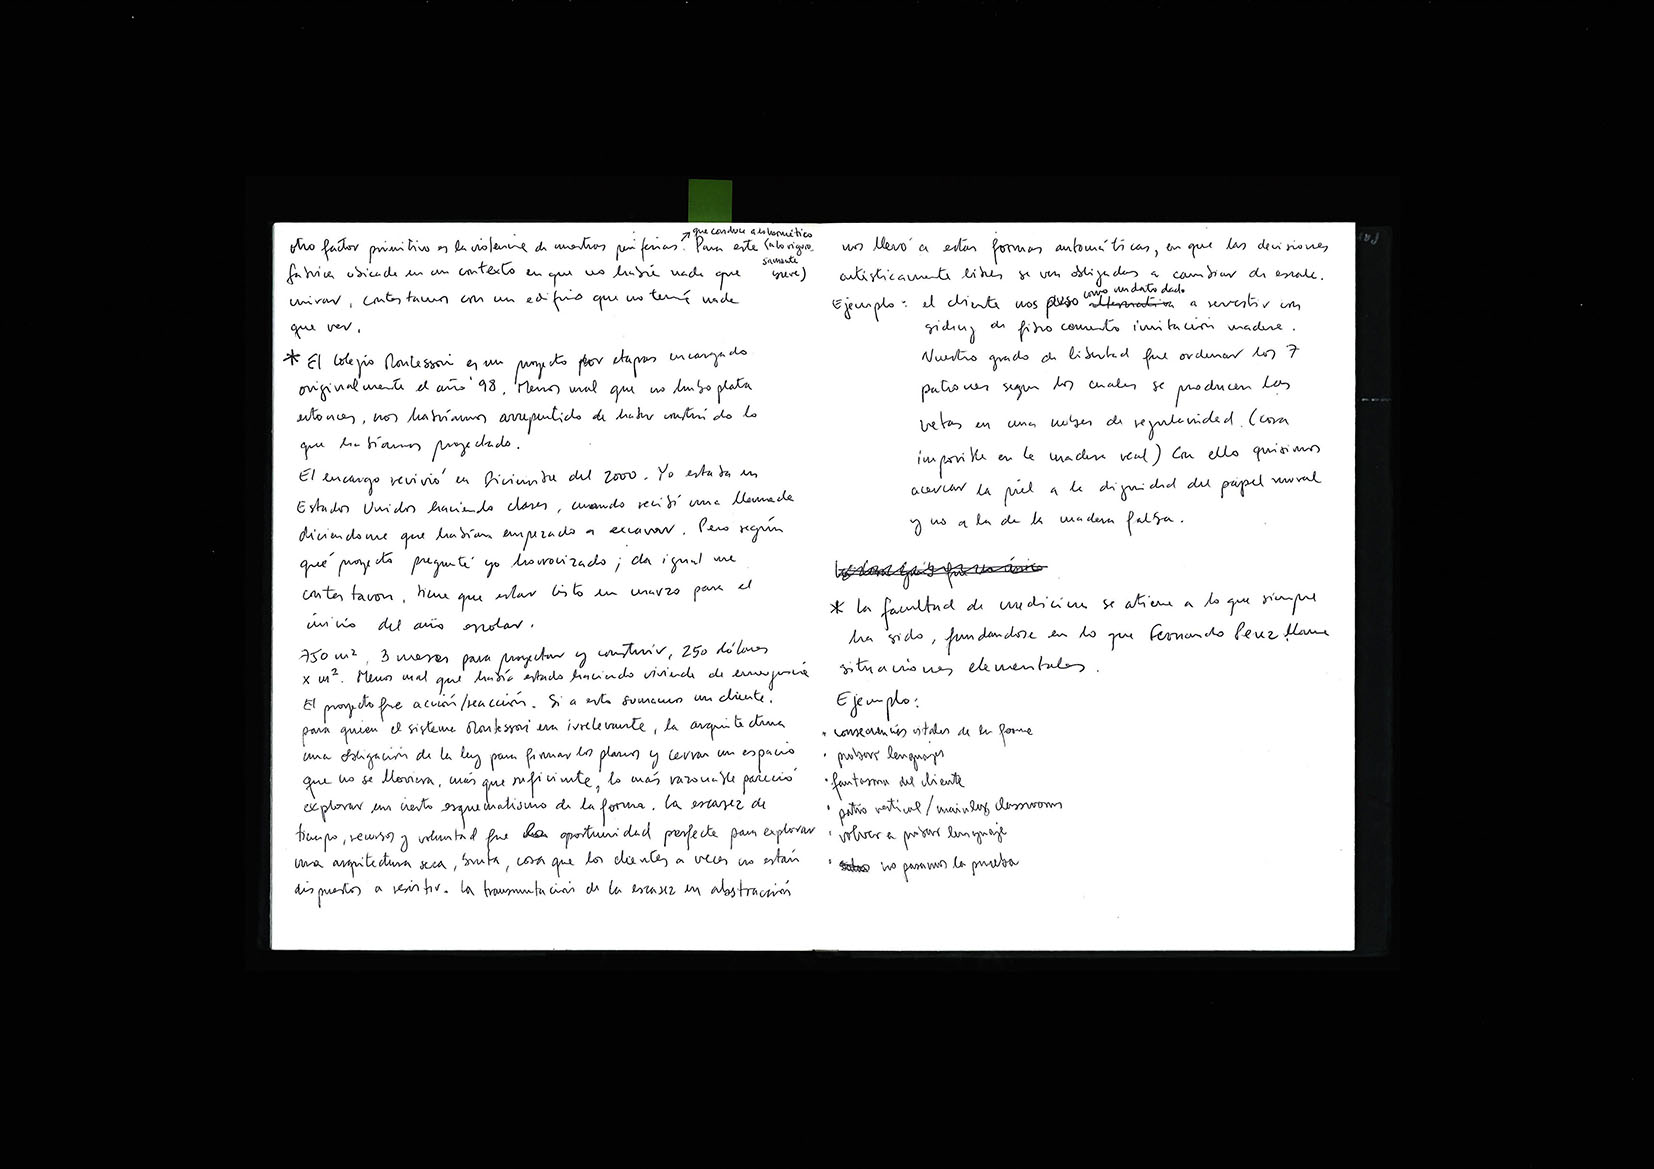 que conduce a lo hermético
otro factor primitivo es la violencia de nuestras periferias. Para este (a lo rigurosamente
fábrica ubicada en un contexto en que no había nada que
mirar, contestamos con un edificio que no tenía nada
que ver.
* El Colegio Montessori es un proyecto por etapas encargado
originalmente el año '98. Menos mal que no hubo plata
entonces, nos habríamos arrepentido de haber construído lo
que habíamos proyectado.
El encargo revivió en Diciembre del 2000. Yo estaba en
Estados Unidos haciendo clases, cuando recibí una llamada
diciéndome que habían empezado a excavar. Pero según
qué proyecto pregunté yo horrorizado; da igual me
contestaron, tiene que estar listo en marzo para el
inicio del año escolar.
750 m², 3 meses para proyectar y construir, 250 dólares
x m². Menos mal que había estado haciendo vivienda de emergencia
El proyecto fue acción/reacción. Si a esto sumamos un cliente,
para quien el sistema Montessori era irrelevante, la arquitectura
una obligación de la ley para firmar los planos y cerrar un espacio
que no se lloviera, más que suficiente, lo más razonable pareció
explorar un cierto esquematismo de la forma. La escasez de
tiempo, recursos y voluntad fue oportunidad perfecta para explorar
una arquitectura seca, bruta, cosa que los clientes a veces no están
dispuestos a resistir. La transmutación de la escasez en abstracción
nos llevó a estas formas automáticas, en que las decisiones
artísticamente libres se ven obligadas a cambiar de escala.
como un dato dado
Ejemplo: el cliente nos puso alternativa a revestir con
siding de fibro cemento imitación madera.
Nuestro grado de libertad fue ordenar los 7
patrones según los cuales se producen las
vetas en una nubes de regularidad. (cosa
imposible en la madera real) Con ello quisimos
acercar la piel a la dignidad del papel mural
y no a la de la madera falsa.
* La facultad de medicina se atiene a lo que siempre
ha sido, fundándose en lo que Fernando Perez llama
situaciones elementales.
Ejemplo:
· consecuencias vitales de la forma
· probar lenguajes
· fantasma del cliente
· patio vertical / mainly classrooms
· volver a probar lenguaje
· no pasamos la prueba